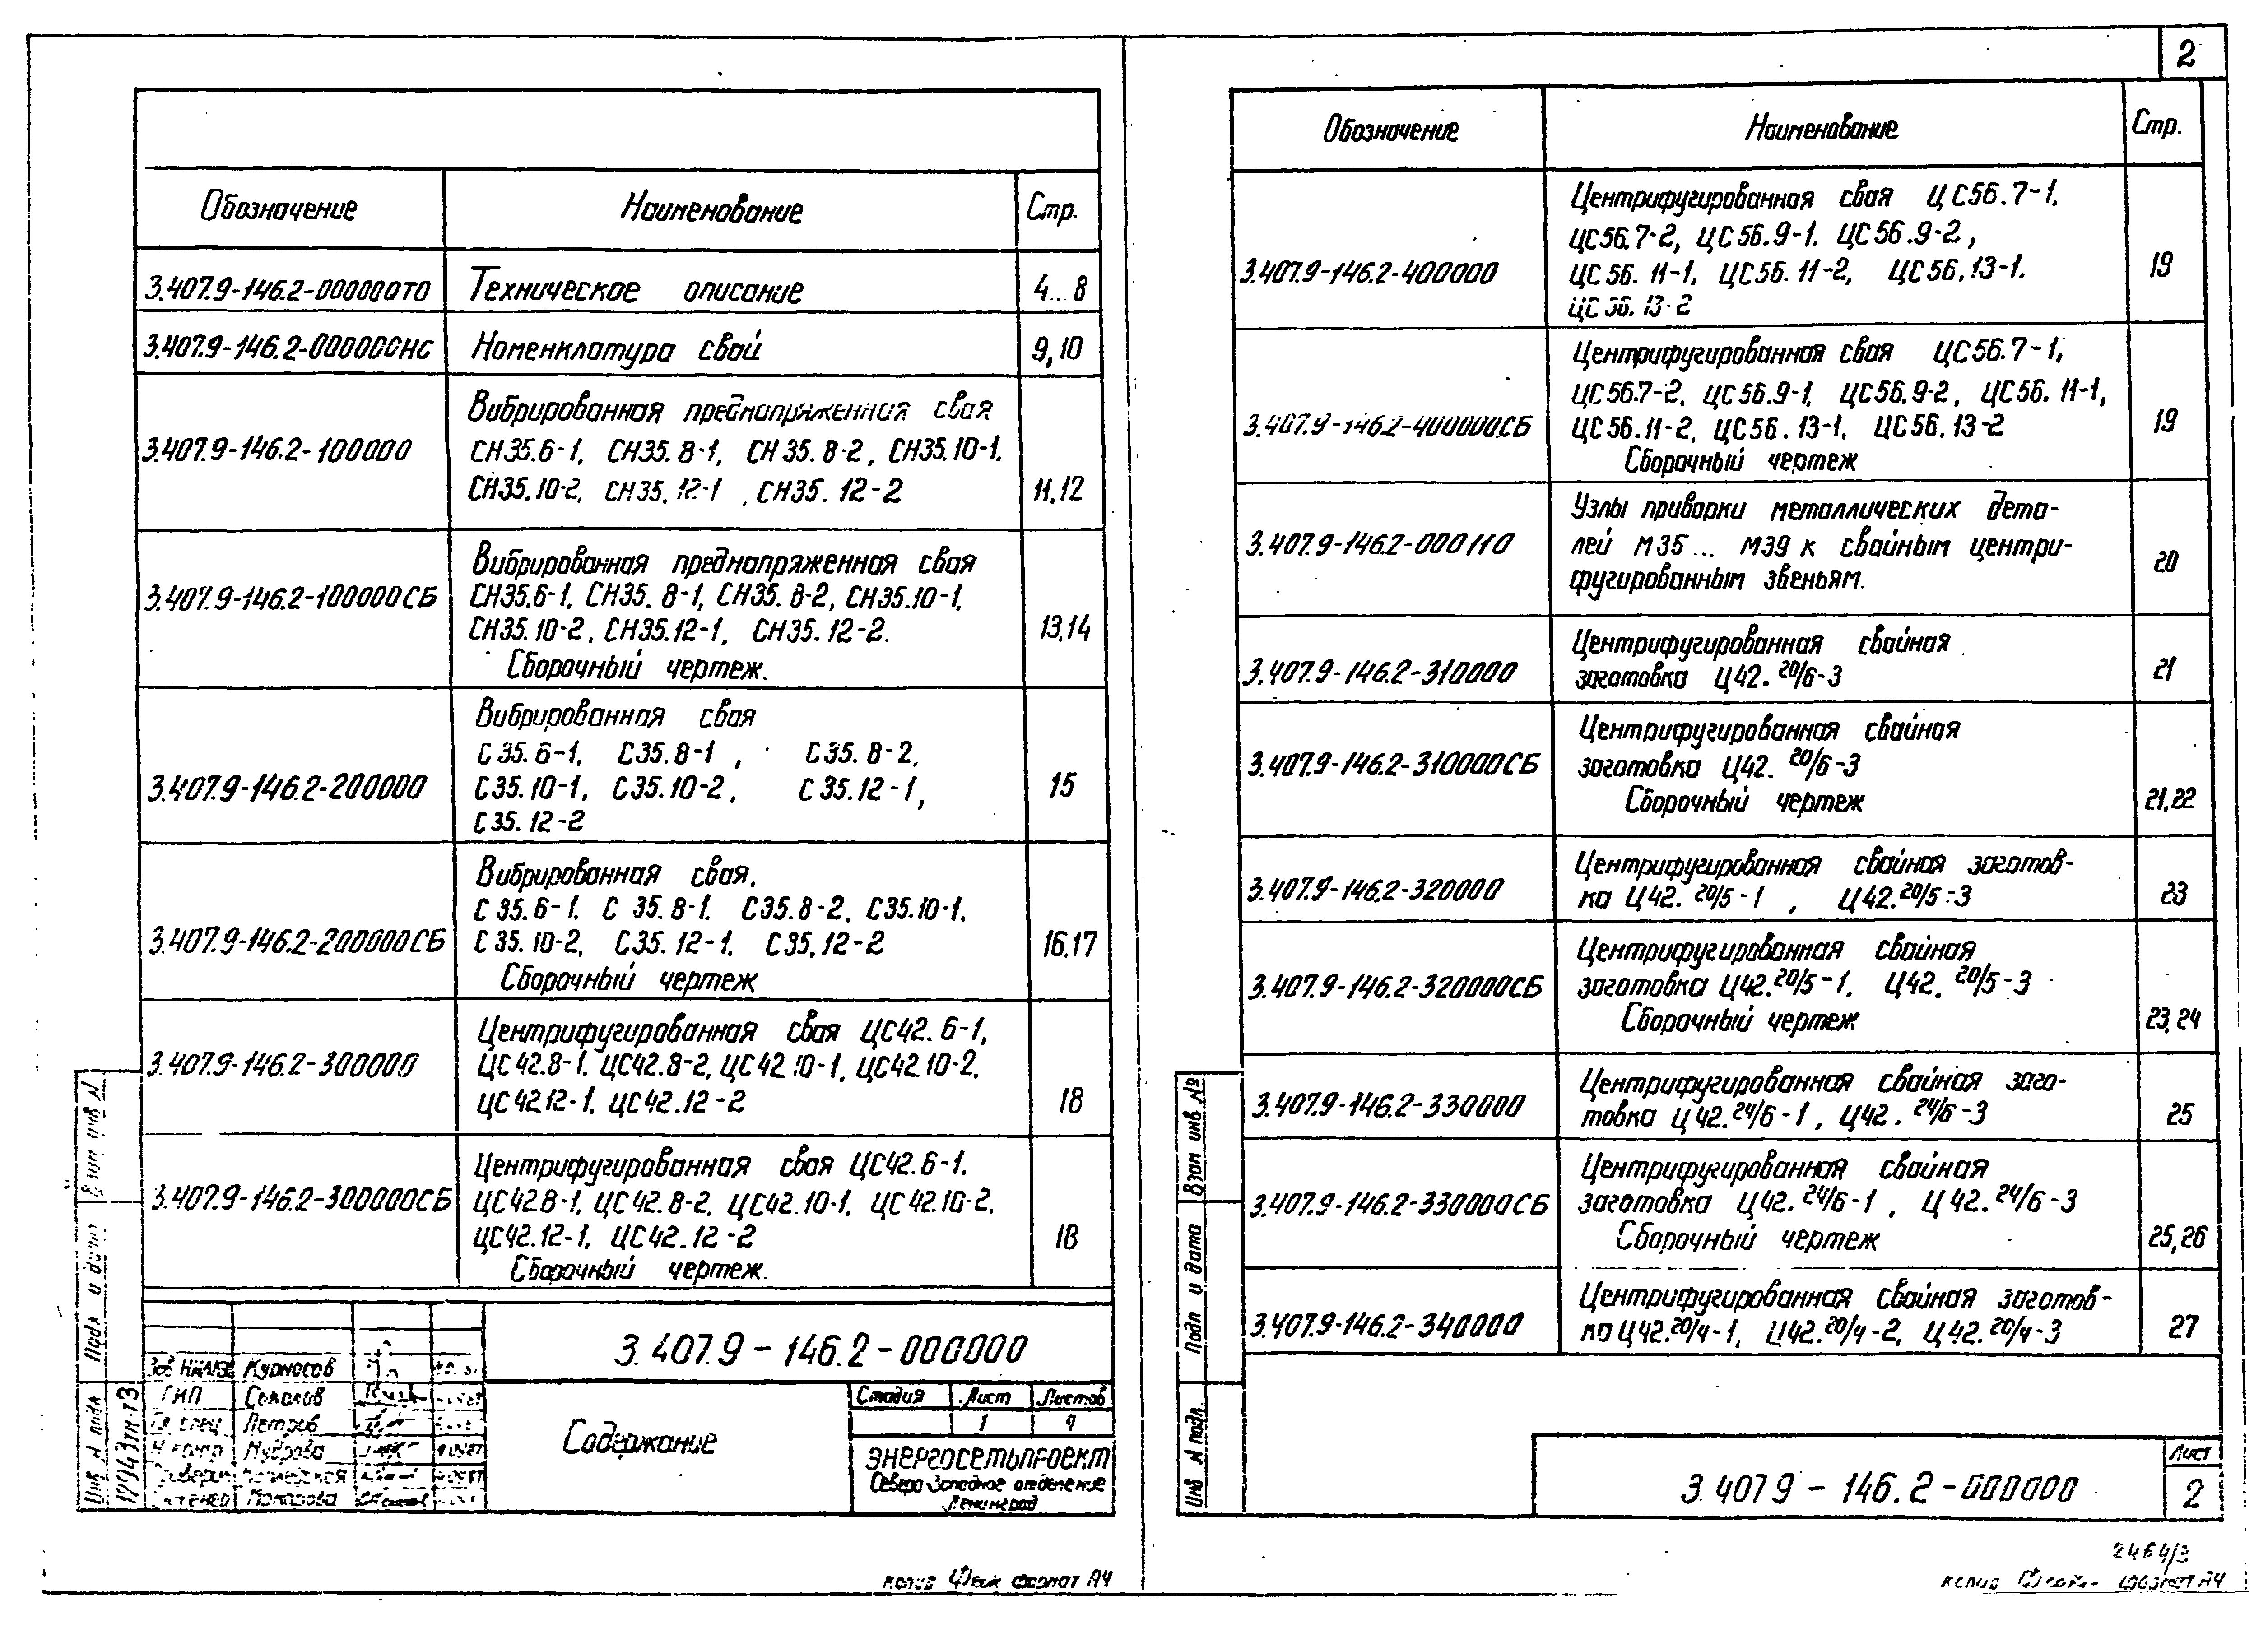 Обозначение
Наименование
Стр.
3.407.9-146.2-000000ТО
Техническое описание
4...8
3.407.9-146.2-000000НС
Номенклатура свай
9,10
3.407.9-146.2-100000
Вибрированная преднапряженная свая
СН35.6-1, СН35.8-1, СН35.8-2, СН35.10-1,
СН35.10-2, СН35.12-1, СН35.12-2
11,12
3.407.9-146.2-100000СБ
Вибрированная преднапряженная свая
СН35.6-1, СН35.8-1, СН35.8-2, СН35.10-1,
СН35.10-2, СН35.12-1, СН35.12-2.
Сборочный чертеж.
13,14
3.407.9-146.2-200000
Вибрированная свая
С35.6-1, С35.8-1, С35.8-2,
С35.10-1, С35.10-2, С35.12-1,
С35.12-2
15
3.407.9-146.2-200000СБ
Вибрированная свая,
С35.6-1, С35.8-1, С35.8-2, С35.10-1,
С35.10-2, С35.12-1, С35.12-2
Сборочный чертеж
16,17
3.407.9-146.2-300000
Центрифугированная свая ЦС42.6-1,
ЦС42.8-1, ЦС42.8-2, ЦС42.10-1, ЦС42.10-2,
ЦС42.12-1, ЦС42.12-2
18
3.407.9-146.2-300000СБ
Центрифугированная свая ЦС42.6-1,
ЦС42.8-1, ЦС42.8-2, ЦС42.10-1, ЦС42.10-2,
ЦС42.12-1, ЦС42.12-2
Сборочный чертеж.
18
3.407.9-146.2-000000
Курносов
ГИП Соколов
Петров
Мудрова
Содержание
Стадия Лист Листов
1
ЭНЕРГОСЕТЬПРОЕКТ
Северо-Западное отделение
Ленинград
Подл и дата
Инв N подл
формат А4
2
Обозначение
Наименование
Стр.
3.407.9-146.2-400000
Центрифугированная свая ЦС56.7-1,
ЦС56.7-2, ЦС56.9-1, ЦС56.9-2,
ЦС56.11-1, ЦС56.11-2, ЦС56.13-1,
ЦС56.13-2
19
3.407.9-146.2-400000СБ
Центрифугированная свая ЦС56.7-1,
ЦС56.7-2, ЦС56.9-1, ЦС56.9-2, ЦС56.11-1,
ЦС56.11-2, ЦС56.13-1, ЦС56.13-2
Сборочный чертеж
19
3.407.9-146.2-000110
Узлы приварки металлических дета-
лей М35... М39 к свайным центри-
фугированным звеньям.
20
3.407.9-146.2-310000
Центрифугированная свайная
заготовка Ц42.20/6-3
21
3.407.9-146.2-310000СБ
Центрифугированная свайная
заготовка Ц42.20/6-3
Сборочный чертеж
21,22
3.407.9-146.2-320000
Центрифугированная свайная заготов-
ка Ц42.20/5-1, Ц42.20/5-3
23
3.407.9-146.2-320000СБ
Центрифугированная свайная
заготовка Ц42.20/5-1, Ц42.20/5-3
Сборочный чертеж
23,24
3.407.9-146.2-330000
Центрифугированная свайная заго-
товка Ц42.24/6-1, Ц42.24/6-3
25
3.407.9-146.2-330000СБ
Центрифугированная свайная
заготовка Ц42.24/6-1, Ц42.24/6-3
Сборочный чертеж
25,26
3.407.9-146.2-340000
Центрифугированная свайная заготов-
ка Ц42.20/4-1, Ц42.20/4-2, Ц42.20/4-3
27
Взам инв №
Подп и дата
Инв N подл.
3.407.9-146.2-000000
Лист
2
2464/3